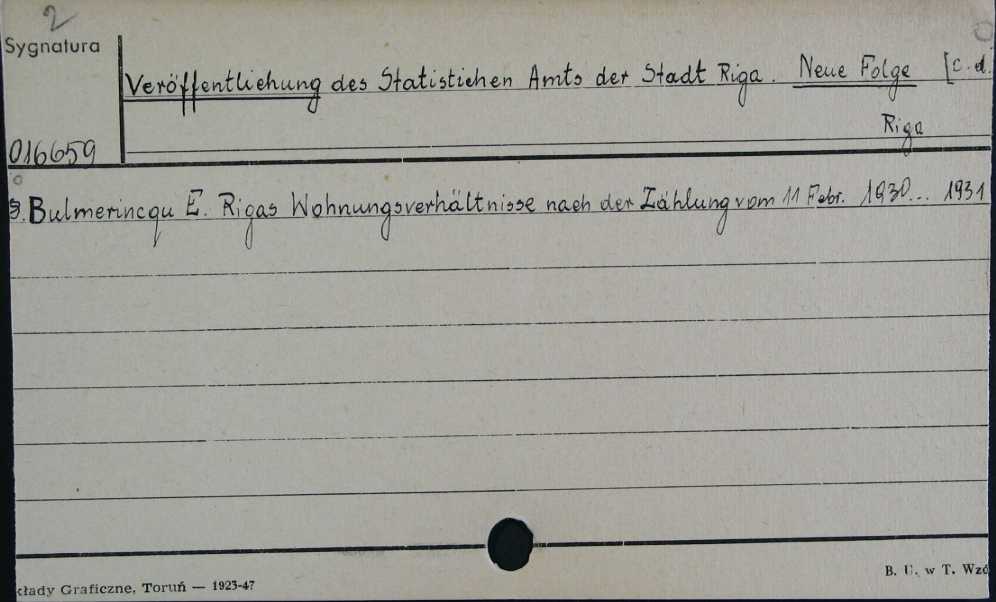 2
Sygnatura
Veröffentliehung des Statistichen Amts der Stadt Riga. Neue Folge [c.d.
Riga
016659
8. Bulmerincqu E. Rigas Wohnungsverhältnisse nach der Zählung vom 11 Febr. 1930... 1931
kłady Graficzne, Toruń — 1923-47
B. U. w T. Wzó